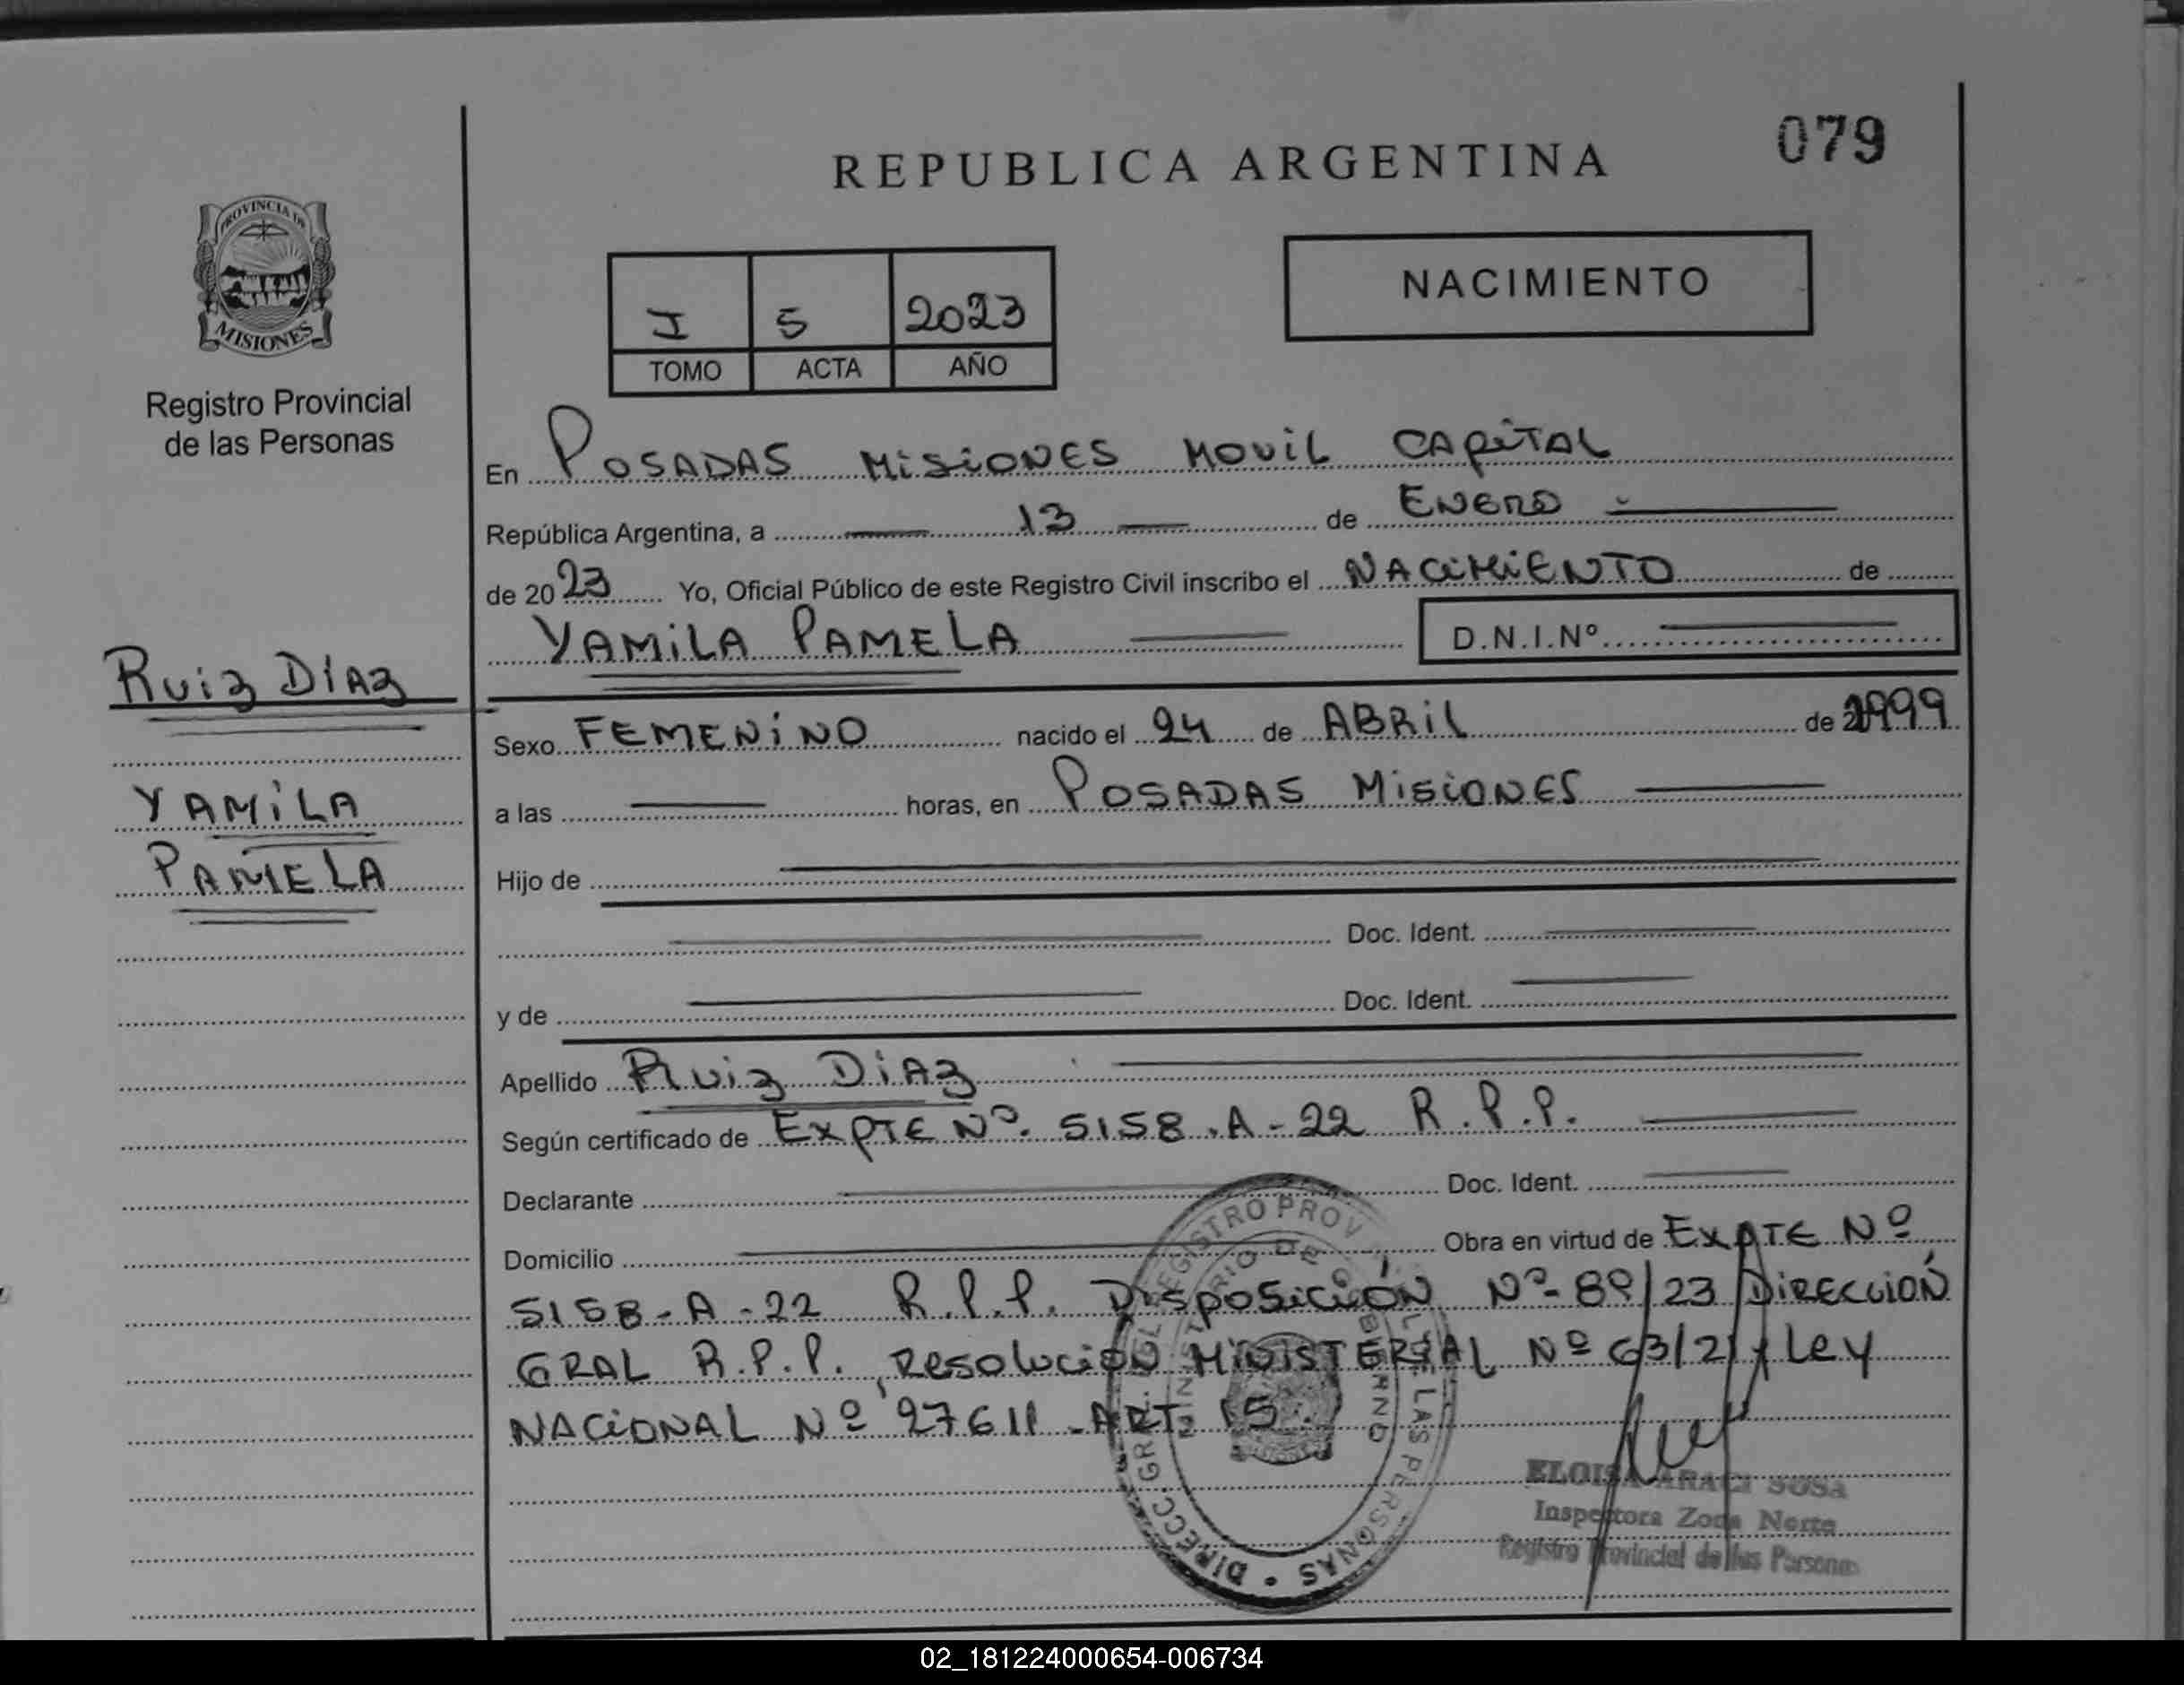 079
REPUBLICA ARGENTINA
PROVINCIA DE
MISIONES
Registro Provincial
de las Personas
NACIMIENTO
I 5 2023
TOMO ACTA AÑO
En POSADAS MISIONES MOVIL CAPITAL
República Argentina, a 13 de ENERO
de 2023 Yo, Oficial Público de este Registro Civil inscribo el NACIMIENTO de
YAMILA PAMELA D.N.I.Nº
Ruiz DIAz
YAMILA
PAMELA
Sexo FEMENINO nacido el 24 de ABRIL de 1999
a las horas, en POSADAS MISIONES
Hijo de
Doc. Ident.
y de Doc. Ident.
Apellido Ruiz DIAz
Según certificado de EXPTE Nº. 5158.A-22 R.P.P.
Declarante Doc. Ident.
Domicilio Obra en virtud de EXPTE Nº
5158-A-22 R.P.P. DISPOSICIÓN Nº- /23 DIRECCIÓN
GRAL R.P.P., Resolución MINISTERIAL Nº 63/21 y Ley
NACIONAL Nº 27611 - ART. 15.
DIRECC. GRAL. DEL REGISTRO PROV. DE LAS PERSONAS
MINISTERIO DE GOBIERNO
ELOISA ARACI SOSA
Inspectora Zona Norte
Registro Provincial de las Personas
02_181224000654-006734